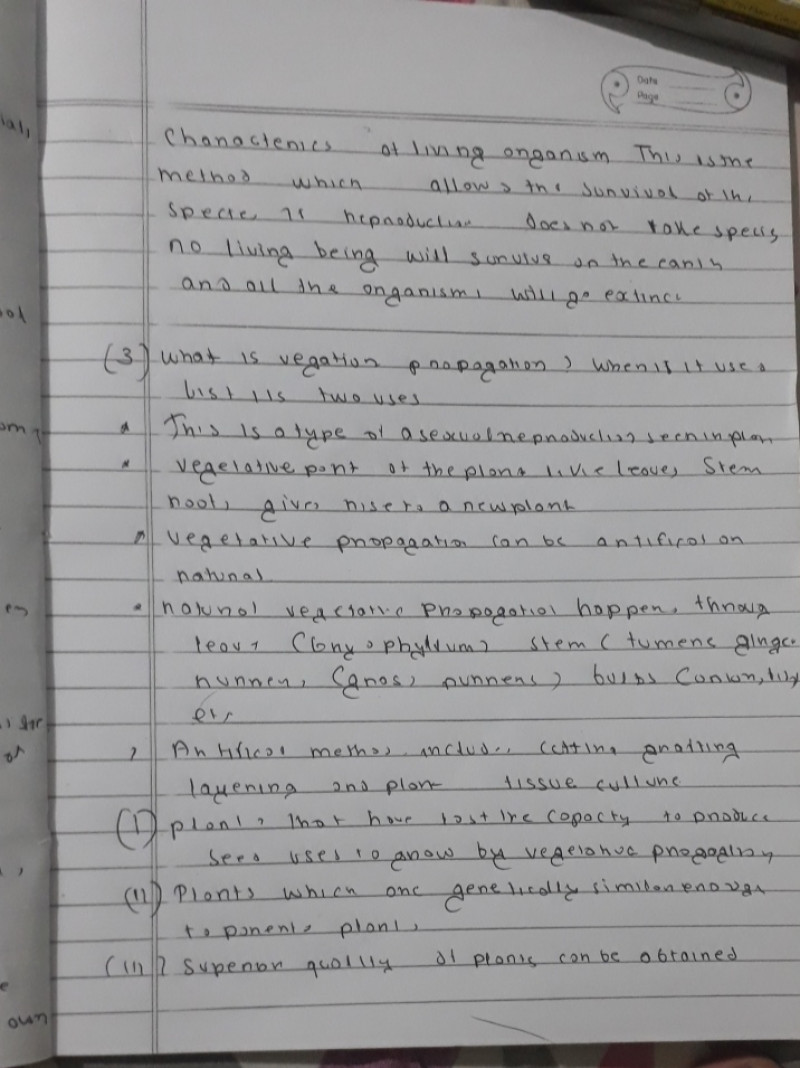 Date
Page
Charactenics of living organism This is the
method which allows the survival of the
species If reproduction does not take species
no living being will survive on the earth
and all the organisms will go extinct
(3) what is vegation propagation? When is it used
List its two uses
This is a type of asexual reproduction seen in plan
vegetative part of the plant like leaves stem
root, gives rise to a new plant
vegetative propagation can be artifical or
natural
natural vegetative propagation happens through
leaves (bryophyllum) stem (tumers ginger
runner, (grass, runners) bulbs (onion, lily
etc
Artifical methods include cutting grafting
layering and plant tissue culture
(i) plants that have lost the capacity to produce
seed uses to grow by vegetative
(ii) Plants which are genetically similar enough
to parents plants
(iii) Superior quality of plants can be obtained
ial,
ool
om
es
or
own